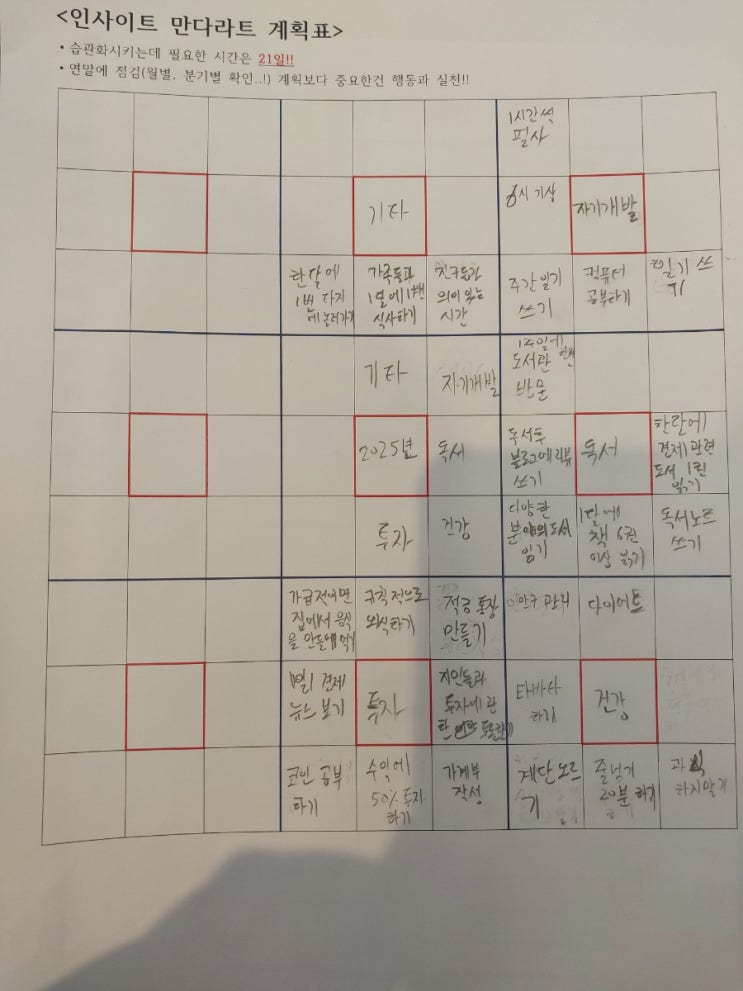 <인사이트 만다라트 계획표>
• 습관화시키는데 필요한 시간은 21일!!
• 연말에 점검(월별, 분기별 확인..!) 계획보다 중요한건 행동과 실천!!
1시간씩
필사
기타
6시 기상
자기개발
한달에
1번 다지
가족들과
1달에 1번
식사하기
친구들과
의미 있는
시간
주간일기
쓰기
컴퓨터
공부하기
일기 쓰
기
기타
자기개발
14일에
도서관
반문
2025년
독서
독서후
블로그에 리뷰
쓰기
독서
한달에
경제 관련
도서 1권
읽기
투자
건강
다양한
분야의 도서
읽기
1달에
책 6권
이상 읽기
독서노트
쓰기
가급적이면
집에서 음식
을 만들어 먹기
규칙적으로
외식하기
적금 통장
만들기
안구 관리
다이어트
1일1 경제
뉴스 보기
투자
지인들과
투자에 관
한
타바타
하기
건강
코인 공부
하기
수익에
50% 투자
하기
가계부
작성
계단 오르
기
줄넘기
20분 하기
과식
하지말기